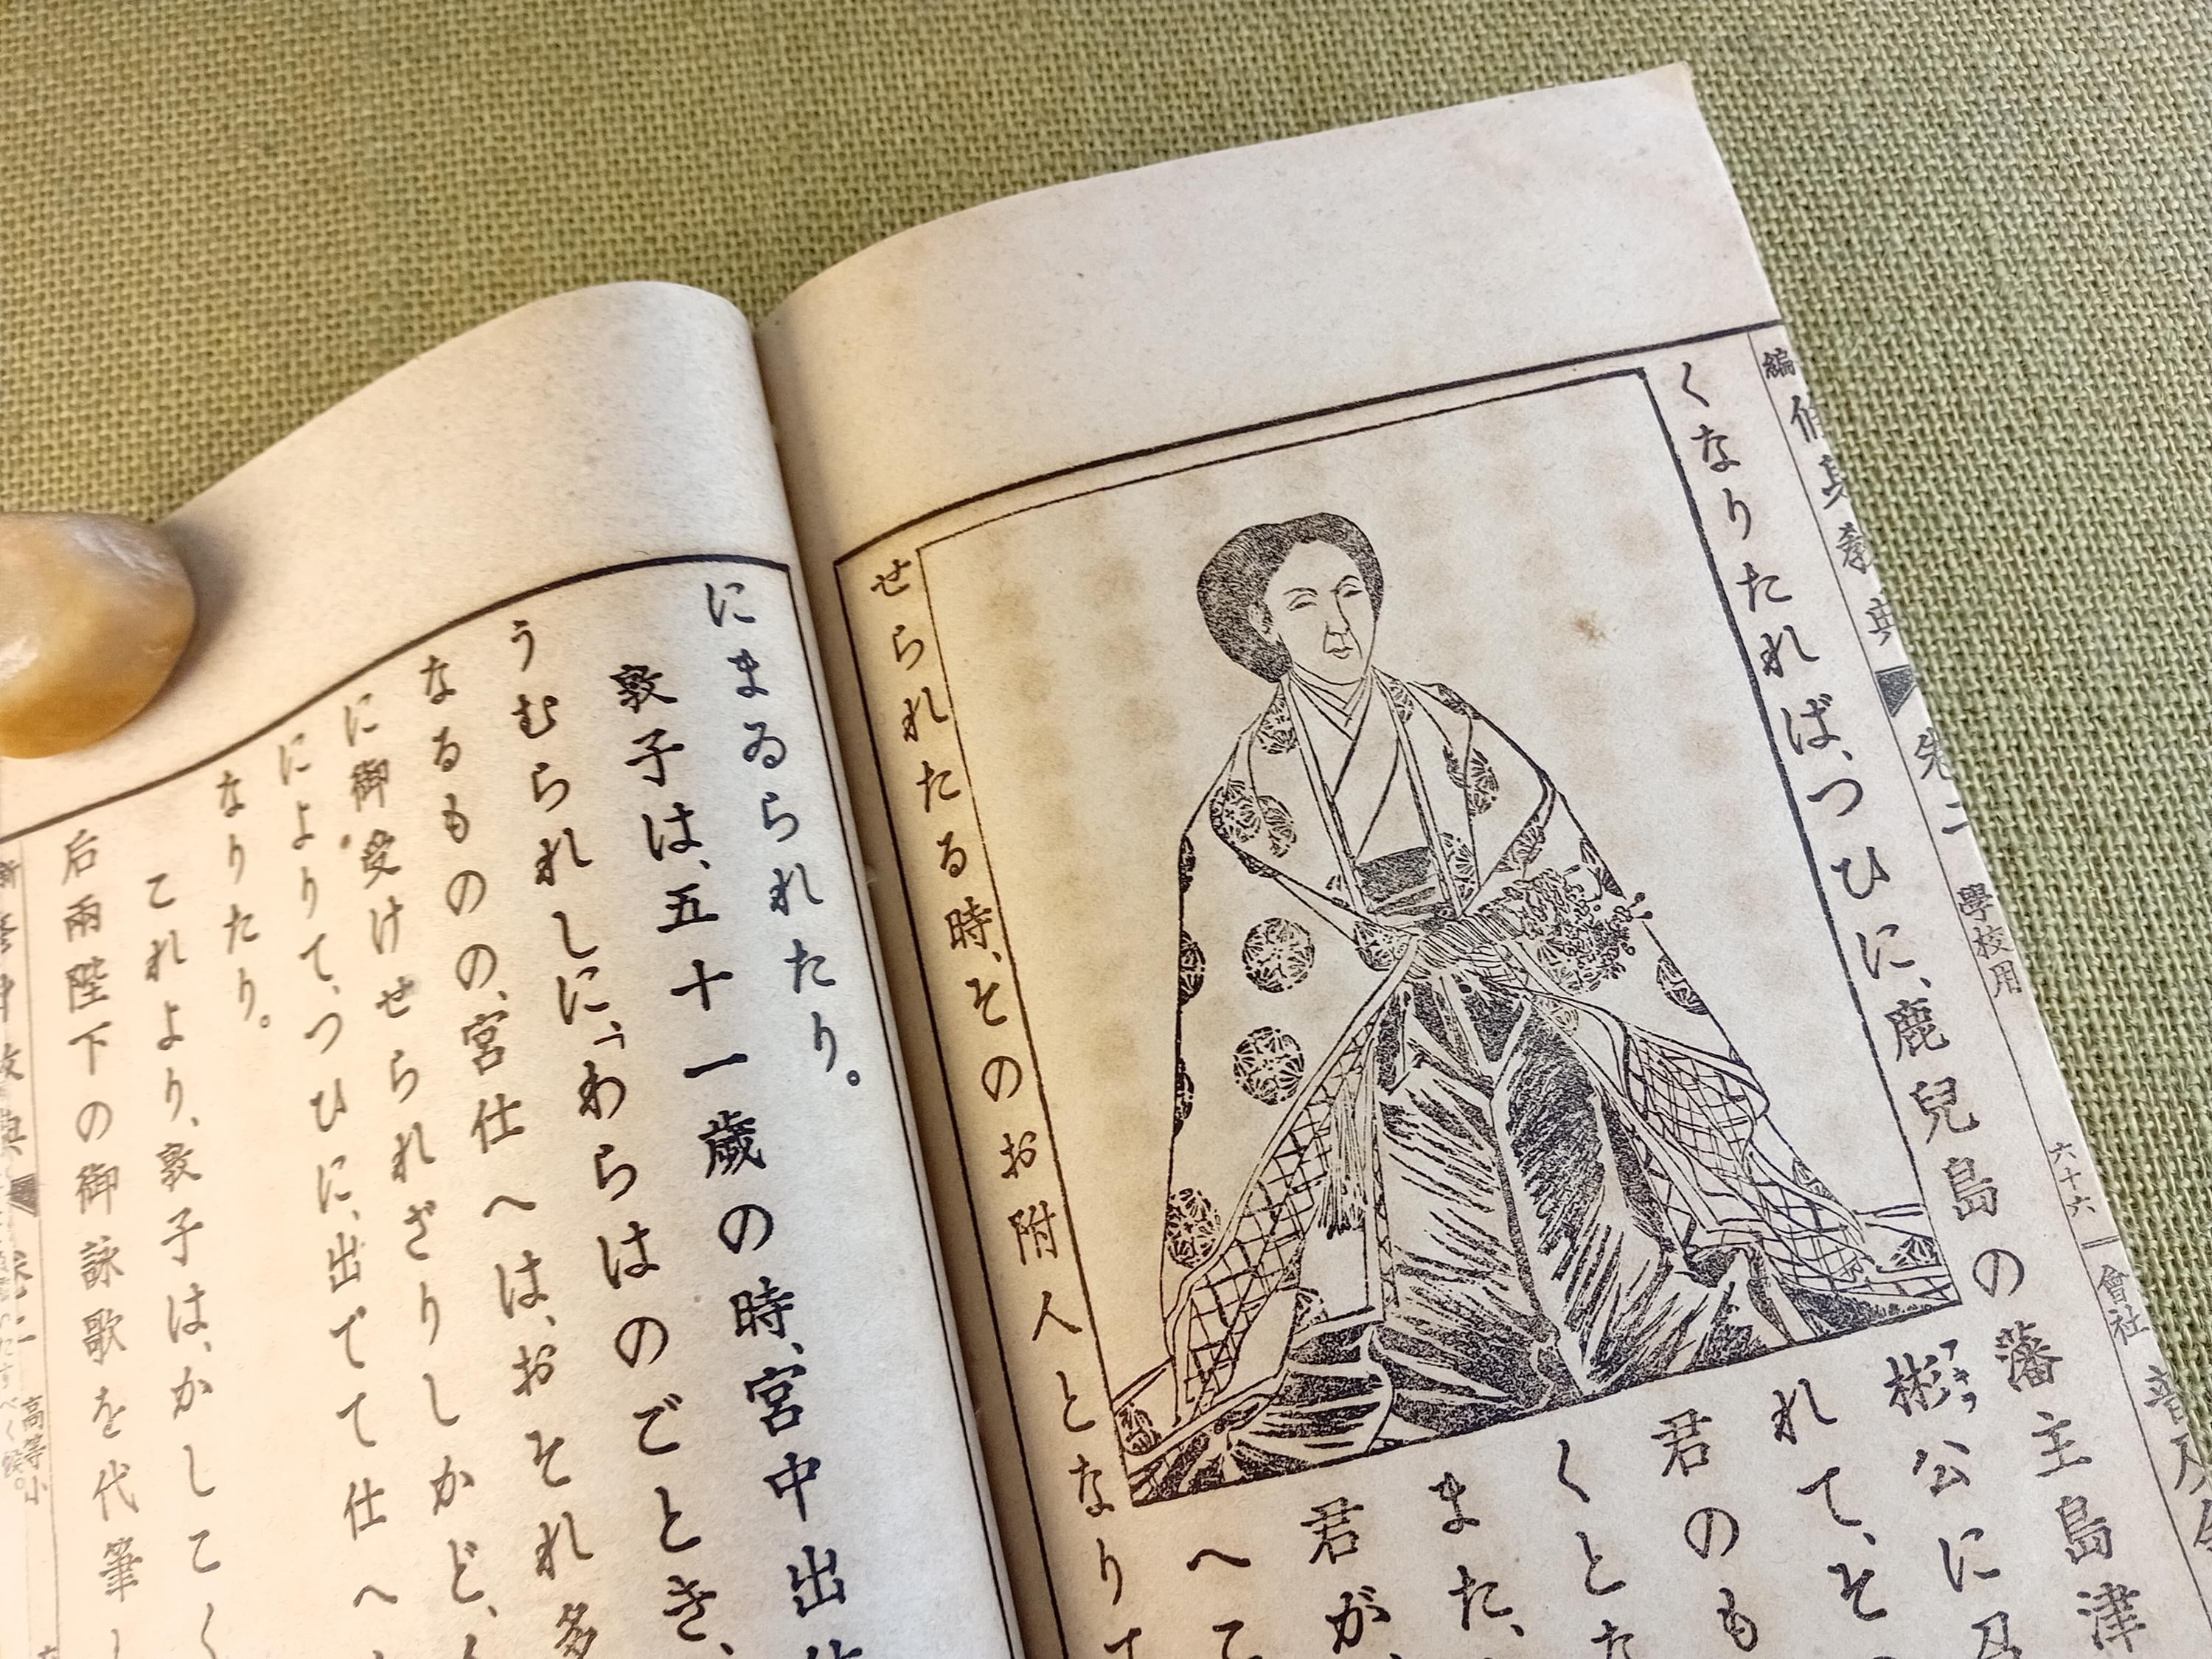 くなりたれば、つひに、鹿兒島の藩主島津
彬公に
れて、そ
君のも
くとた
また、
君が、
へて
せられたる時、そのお附人となりて
編
修身教典
卷二
學校用
六十六
會社
にまゐられたり。
敦子は、五十一歳の時、宮中出
うむられしに、「わらはのごとき、
なるものの、宮仕へは、おそれ多
に御受けせられざりしかど、
によりて、つひに、出でて仕へ
なりたり。
これより、敦子は、かしこく
后兩陛下の御詠歌を代筆し
高等小